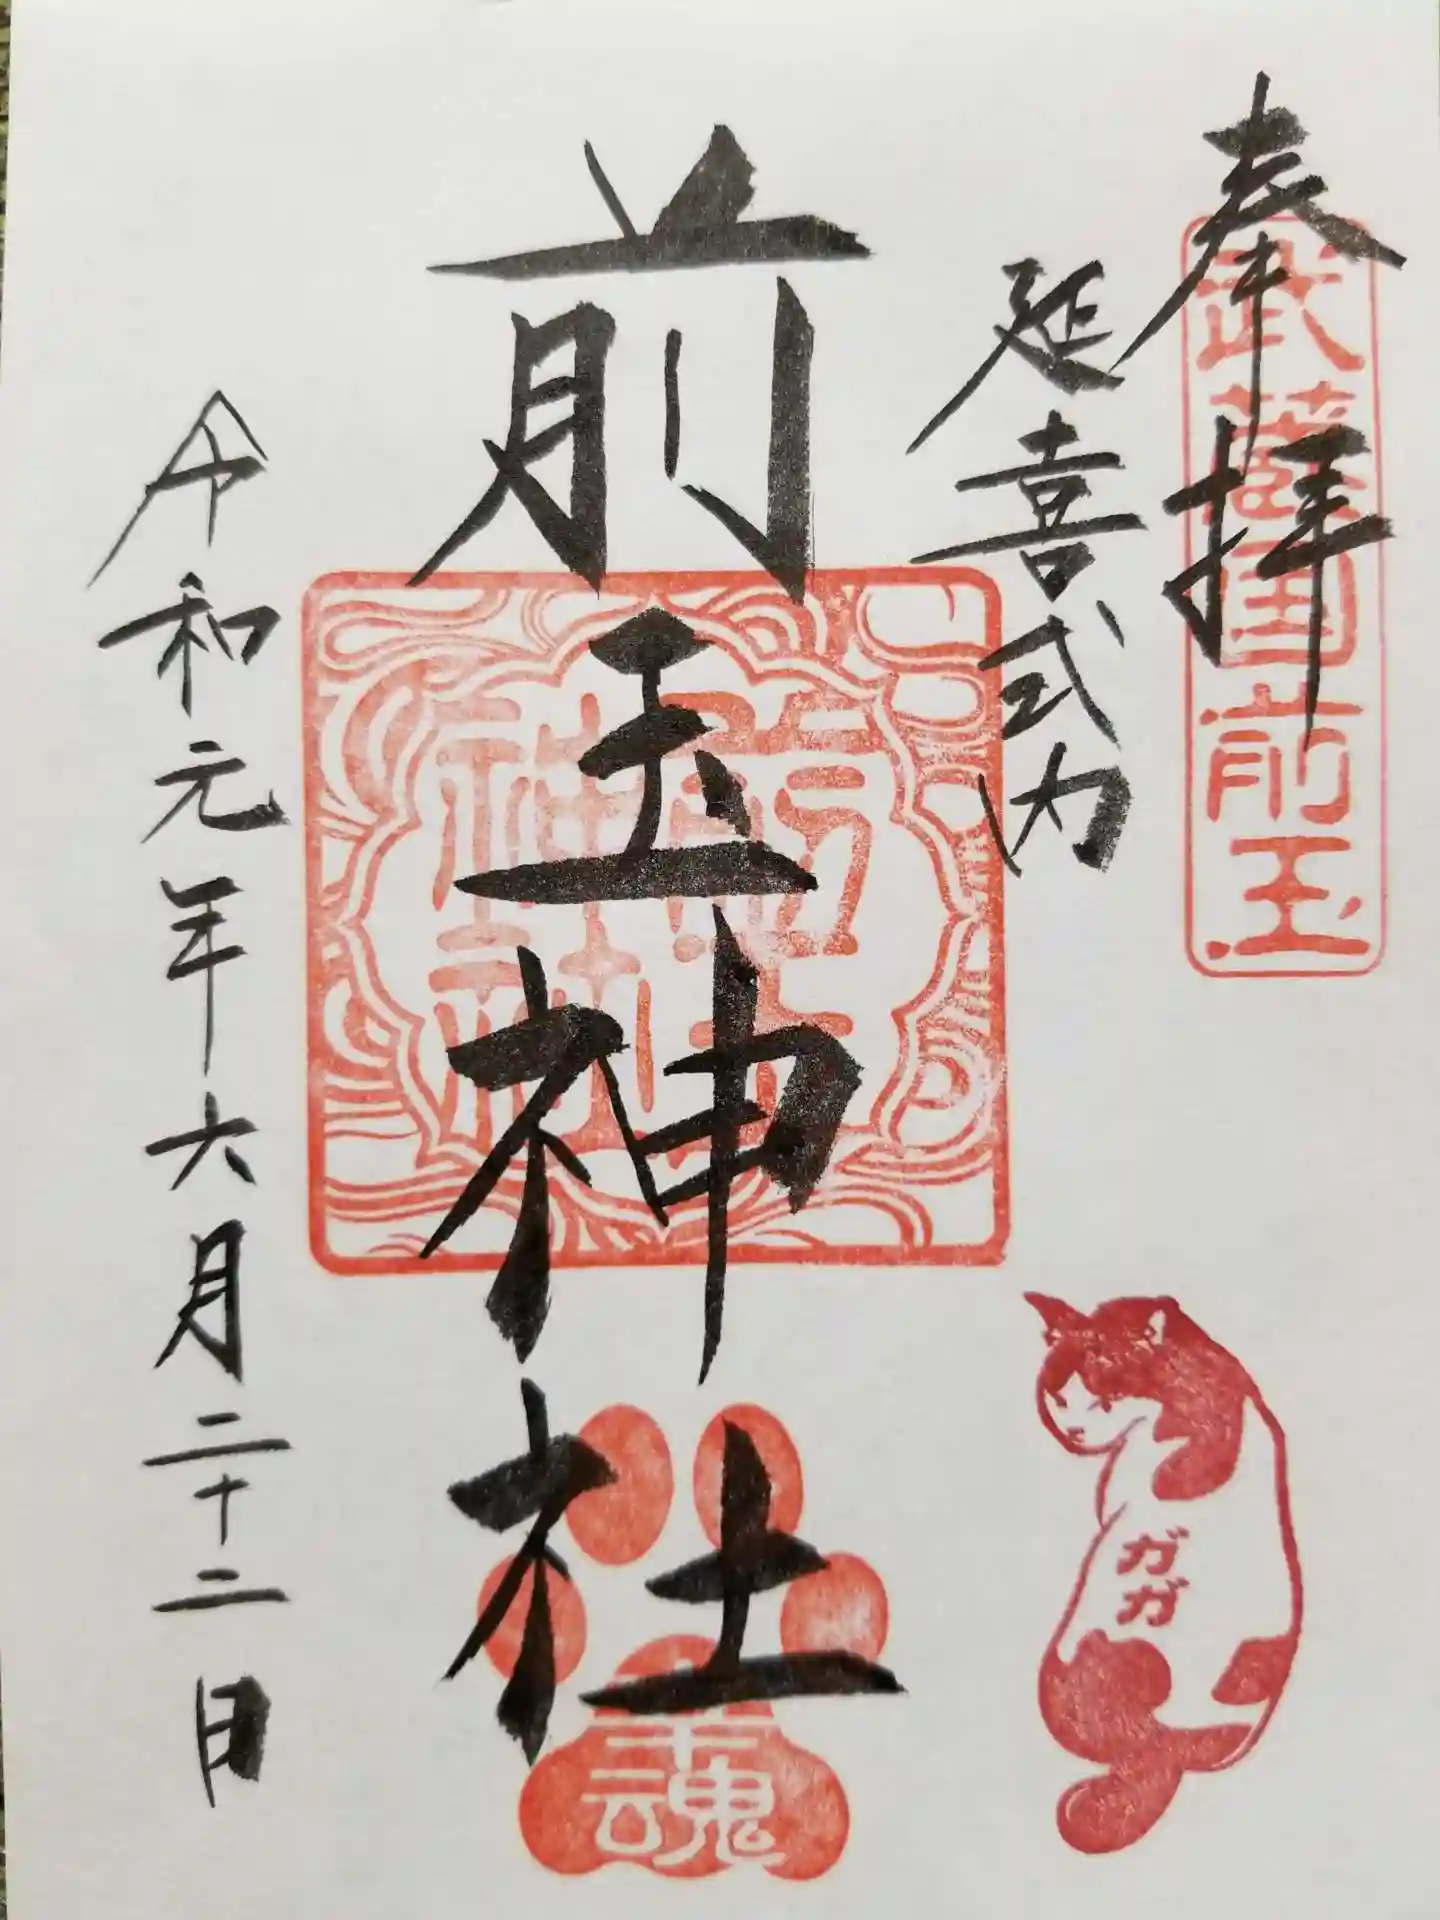 奉拝
武蔵国前玉
延喜式内
前玉神社
前玉
神社
幸魂
ガガ
令和元年六月二十二日